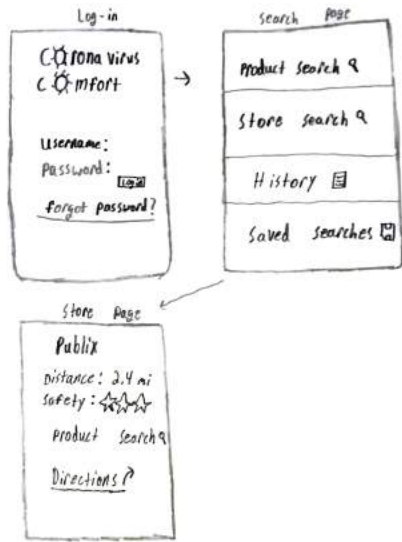 Log-in
Corona virus
Comfort
Username:
Password:
Login
forgot password?
Search Page
Product Search
Store Search
History
Saved Searches
Store Page
Publix
Distance: 2.4 mi
Safety:
Product Search
Directions